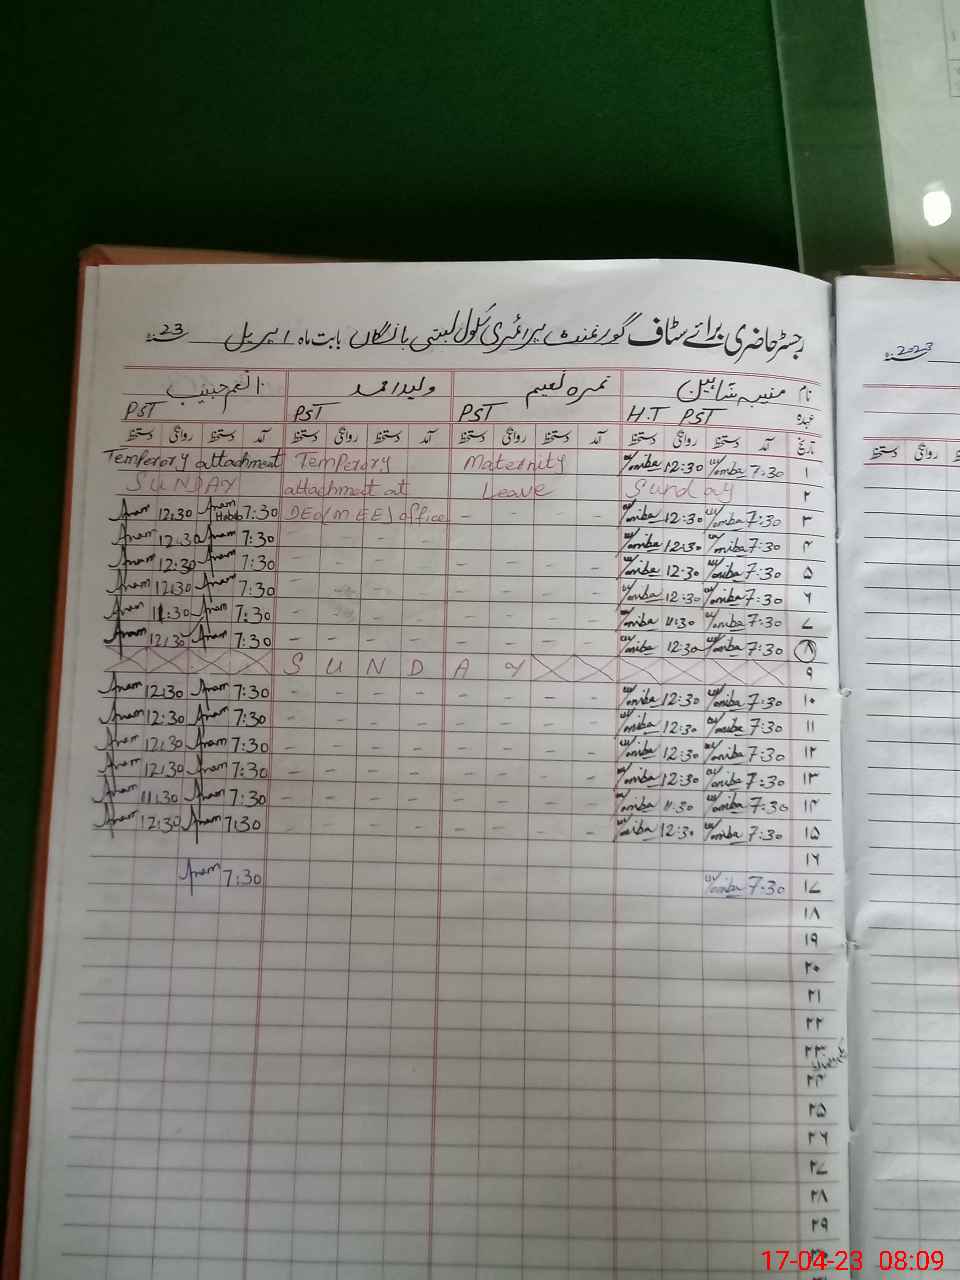 رجسٹر حاضری برائے سٹاف گورنمنٹ پرائمری سکول بستی بابت ماہ اپریل 23
2023
نام منیبہ شاہین ثمرہ نعیم ولید احمد انعم حبیب
عہدہ H.T PST PST PST PST
تاریخ آمد دستخط روانگی دستخط آمد دستخط روانگی دستخط آمد دستخط روانگی دستخط آمد دستخط روانگی دستخط
دستخط روانگی
۱ 7:30 Moniba 12:30 Moniba Maternity Temperory Temperory attachment
۲ Sunday Leave attachment at SUNDAY
۳ 7:30 Moniba 12:30 Moniba - - - - DEO(M EE) office 7:30 Anam Habib 12:30 Anam
۴ 7:30 Moniba 12:30 Moniba - - - - - - - - 7:30 Anam 12:30 Anam
۵ 7:30 Moniba 12:30 Moniba - - - - - - - - 7:30 Anam 12:30 Anam
۶ 7:30 Moniba 12:30 Moniba - - - - - - - - 7:30 Anam 12:30 Anam
۷ 7:30 Moniba 11:30 Moniba - - - - - - - - 7:30 Anam 11:30 Anam
۸ 7:30 Moniba 12:30 Moniba - - - - - - - - 7:30 Anam 12:30 Anam
۹ SUNDAY
۱۰ 7:30 Moniba 12:30 Moniba - - - - - - - - 7:30 Anam 12:30 Anam
۱۱ 7:30 Moniba 12:30 Moniba - - - - - - - - 7:30 Anam 12:30 Anam
۱۲ 7:30 Moniba 12:30 Moniba - - - - - - - - 7:30 Anam 12:30 Anam
۱۳ 7:30 Moniba 12:30 Moniba - - - - - - - - 7:30 Anam 12:30 Anam
۱۴ 7:30 Moniba 11:30 Moniba - - - - - - - - 7:30 Anam 11:30 Anam
۱۵ 7:30 Moniba 12:30 Moniba - - - - - - - - 7:30 Anam 12:30 Anam
۱۶
۱۷ 7:30 Moniba 7:30 Anam
۱۸
۱۹
۲۰
۲۱
۲۲
۲۳
۲۴
۲۵
۲۶
۲۷
۲۸
۲۹
17-04-23 08:09